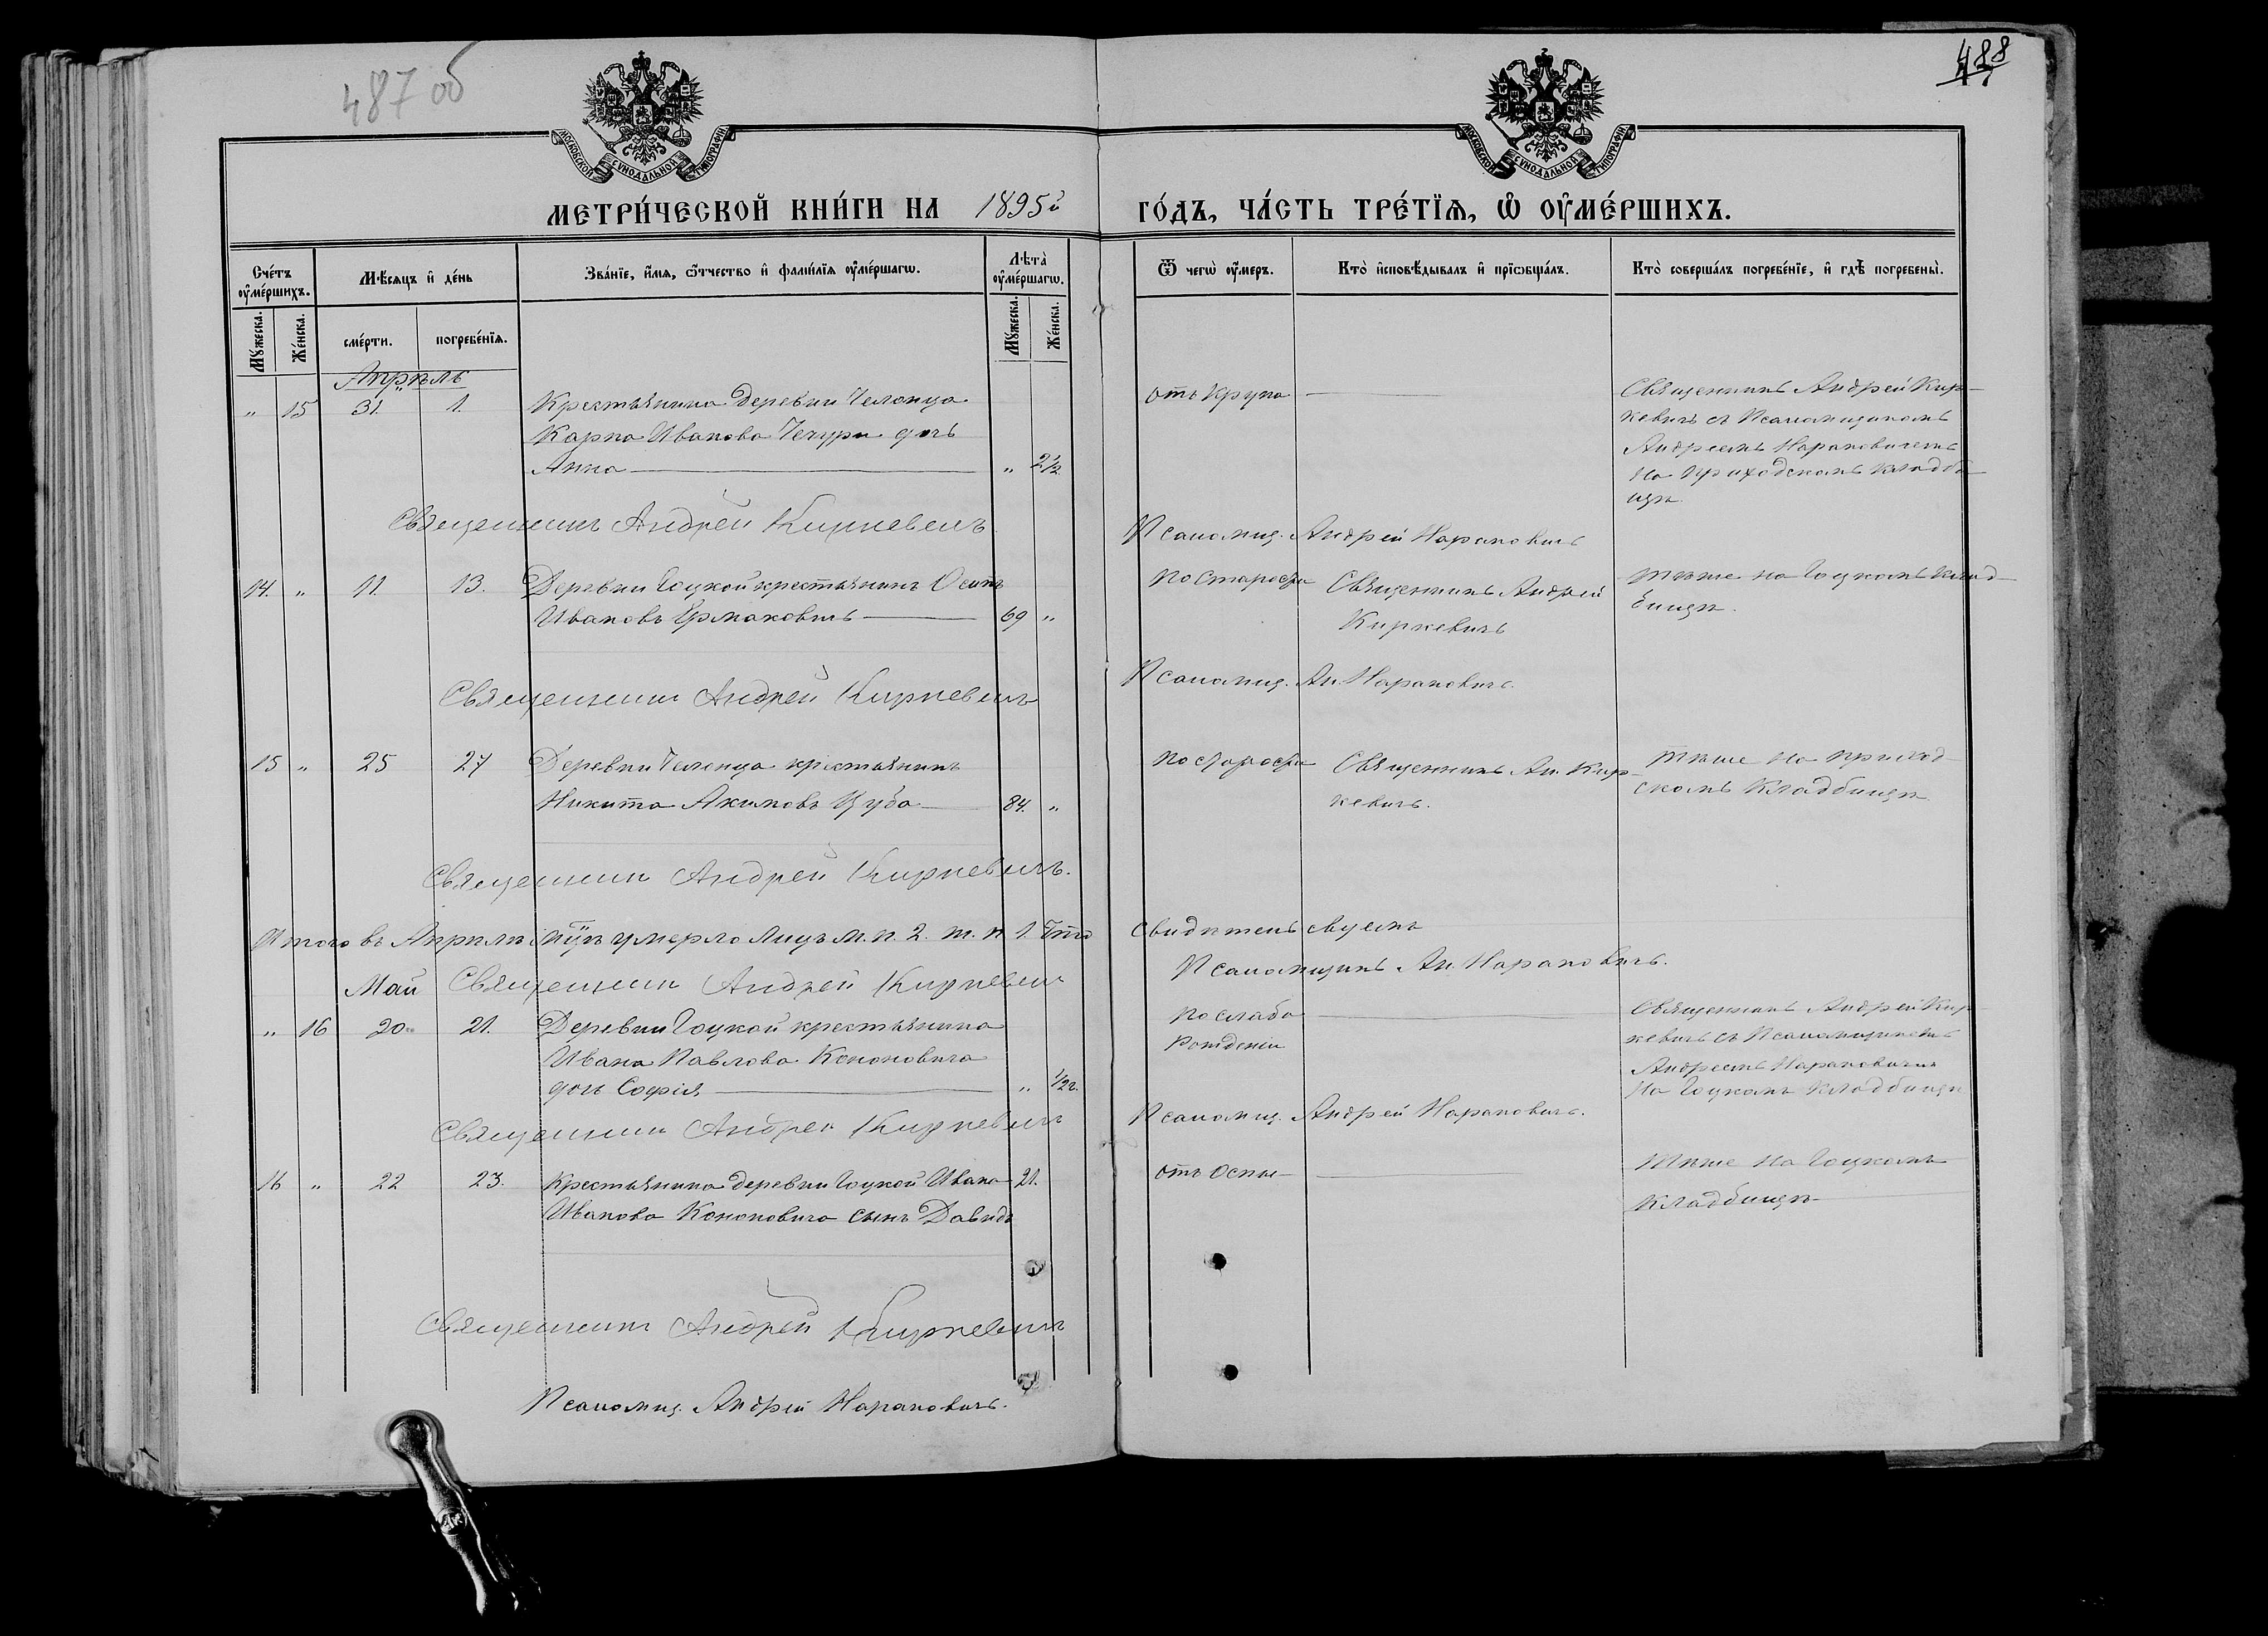 487 об
488
МОСКОВСКОЙ СѴНОДАЛЬНОЙ ТИПОГРАФІИ
МОСКОВСКОЙ СѴНОДАЛЬНОЙ ТИПОГРАФІИ
МЕТРИ́ЧЕСКОЙ КНИ́ГИ НА 1895й
ГО́ДЪ, ЧА́СТЬ ТРЕ́ТЇѦ, Ѽ ОУ҆МЕ́РШИХЪ.
Сче́тъ оу҆ме́ршихъ.
Мꙋ́жеска.
Же́нска.
Мѣ́сѧцъ и҆ де́нь
сме́рти.
погребе́нїѧ.
Зва́нїе, и҆́мѧ, ѻ҆́тчество и҆ фами́лїѧ оу҆ме́ршагѡ.
Лѣ́та оу҆ме́ршагѡ.
Мꙋ́жеска.
Же́нска.
Ѿ чегѡ̀ оу҆́меръ.
Кто̀ и҆сповѣ́дывалъ и҆ прїѡбща́лъ.
Кто̀ соверша́лъ погребе́нїе, и҆ гдѣ̀ погребены̀.
Апрѣль
" 15 31. 1. Крестьянина деревни Челонца
Карпа Иванова Чечури дочь
Анна " 2½
отъ Крупа
Священникъ Андрей Кир-
кевичъ съ Псаломщикомъ
Андреемъ Нарановичемъ
на Приходскомъ кладби-
щѣ
Священникъ Андрей Киркевичъ
Псаломщ. Андрей Нарановичъ
14. " 11. 13. Деревни Гоцкой крестьянинъ Осипъ
Ивановъ Ермаковичъ 69 "
по старости
Священникъ Андрей
Киркевичъ
тѣже на Гоцкомъ клад-
бищѣ.
Священникъ Андрей Киркевичъ
Псаломщ. Ан. Нарановичъ.
15 " 25 27 Деревни Челонца крестьянинъ
Никита Акимовъ Цуба 84. "
по старости
Священникъ Ан. Кир-
кевичъ.
тѣже на приход-
скомъ Кладбищѣ
Священникъ Андрей Киркевичъ.
Итого въ Апрѣлѣ м-цѣ умерло лицъ м. п. 2. ж. п 1. Что
свидѣтельствуемъ
Священникъ Андрей Киркевичъ
Псаломщикъ Ан. Нарановичъ.
Май
" 16 20 21. Деревни Гоцкой крестьянина
Ивана Павлова Кононовича
дочь Софія " ½г.
по слабо
рожденіи
Священникъ Андрей Кир-
кевичъ съ Псаломщикомъ
Андреемъ Нарановичемъ
на Гоцкомъ кладбищѣ
Священникъ Андрей Киркевичъ
Псаломщ. Андрей Нарановичъ.
16 " 22 23. Крестьянина деревни Гоцкой Ивана 21.
Иванова Кононовича сынъ Давидъ
отъ Оспы
тѣже на Гоцкомъ
кладбищѣ
Священникъ Андрей Киркевичъ
Псаломщ. Андрей Нарановичъ.